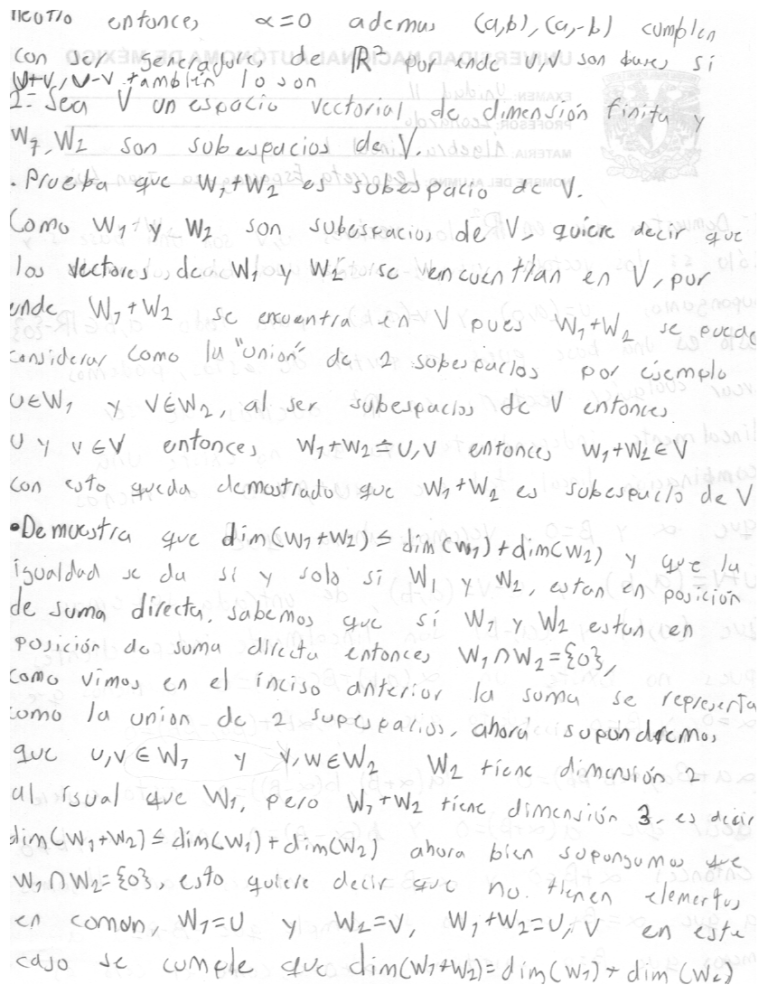 neutro entonces α=0 ademas (a,b),(a,-b) cumplen
con ser generadores de ℝ² por ende u,v son bases si
u+v, u-v también lo son
2- Sea V un espacio vectorial de dimensión finita y
W1, W2 son subespacios de V.
• Prueba que W1+W2 es subespacio de V.
Como W1 y W2 son subespacios de V, quiere decir que
los vectores de W1 y W2 se encuentran en V, por
ende W1+W2 se encuentra en V pues W1+W2 se puede
considerar como la "union" de 2 subespacios por ejemplo
U∈W1 y V∈W2, al ser subespacios de V entonces
U y v∈V entonces W1+W2=U,V entonces W1+W2∈V
con esto queda demostrado que W1+W2 es subespacio de V
• Demuestra que dim(W1+W2)≤dim(W1)+dim(W2) y que la
igualdad se da si y solo si W1 y W2, estan en posición
de suma directa, sabemos que si W1 y W2 estan en
posición de suma directa entonces W1∩W2={0},
como vimos en el inciso anterior la suma se representa
como la union de 2 supespacios, ahora supondremos
que u,v∈W1 y v,w∈W2 W2 tiene dimensión 2
al igual que W1, pero W1+W2 tiene dimensión 3, es decir
dim(W1+W2)≤dim(W1)+dim(W2) ahora bien supongamos que
W1∩W2={0}, esto quiere decir que no tienen elementos
en comun, W1=U y W2=V, W1+W2=U,V en este
caso se cumple que dim(W1+W2)=dim(W1)+dim(W2)